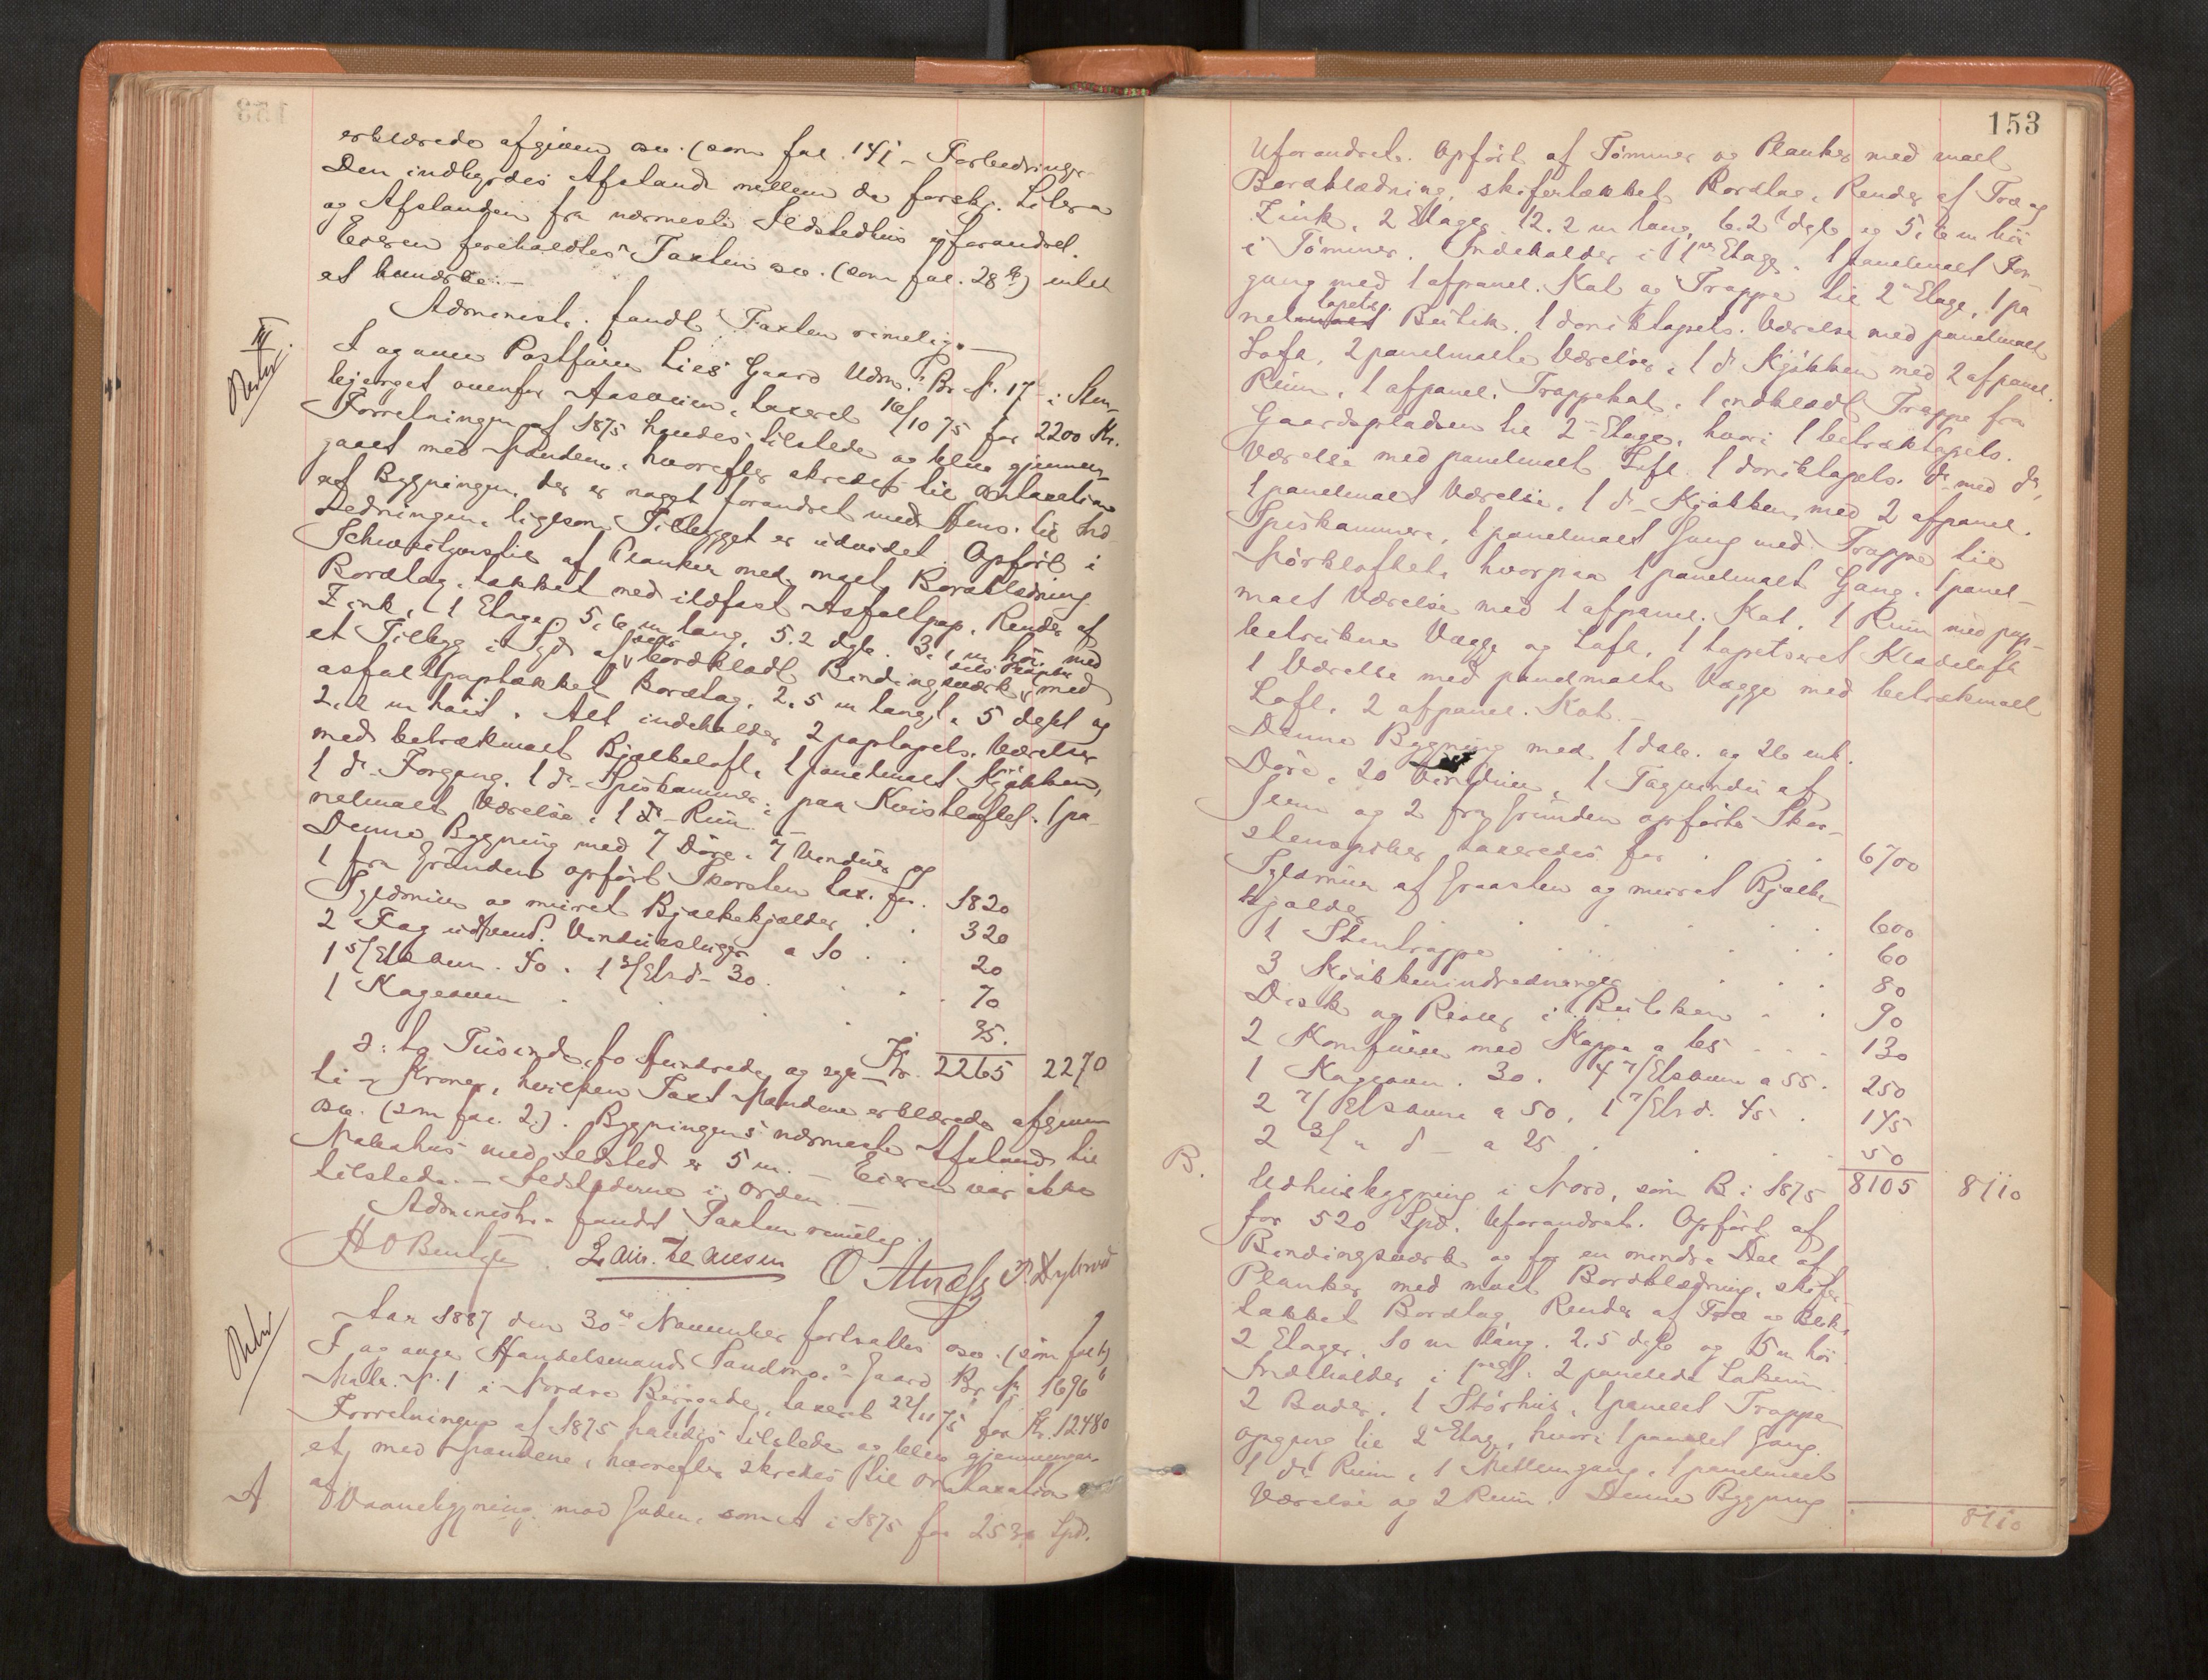 erklærede afgiven osv. (som fol. 141 - Forbedringer
Den indbyrdes Afstand mellem de forskj. Litera
og Afstanden fra nærmeste Ildstedhus uforandret.
Eieren foreholdtes Taxten osv. (som fol. 28) intet
at bemærke. -
Administr. fandt Taxten rimelig. -
III.
I og over Postfører Lies Gaard Udm. Br. N. 17 i Sten-
bjerget ovenfor Aasveien, taxeret 16/10 75 for 2200 Kr.
Forretningen af 1875 havdes tilstede og blev gjennem-
gaaet med Mændene, hvorefter skredes til Omtaxation
af Bygningen, der er noget forandret med Hens. til Ind-
redningen, ligesom Tilbygget er udvidet. Opført i
Schweitzerstil af Planker med malt Bordklædning
Bordtag, tækket med ildfast Asfaltpap, Render af
Zink, 1 Etage, 5,6 m lang, 5.2 dyb. 3,1 m høi med
et Tilbyg i Syd af bordklædt Bindingsværk, dels Planker med
asfaltpaptækket Bordtag, 2,5 m langt, 5 dybt og
2,2 m høit. Alt indeholder 2 paptapets. Værelser
med betrækmalt Bjælkeloft, 1 panelmalt Kjøkken,
1 do Forgang, 1 do Spiskammer; paa Kvistloftet 1 pa-
nelmalt Værelse, 1 do Rum. -
Denne Bygning med 7 Døre, 7 Vinduer og
1 fra Grunden opført Skorsten tax. for . 1820
Syldmur og muret Bjælkekjælder . . 320
2 Fag udvend. Vinduesluger a 10 . . 20
1 5/Etsovn. 40. 1 3/Ets do 30 . . . 70
1 Kageovn . . . 35.
Kr. 2265 2270
ɔ: to Tusinde, to Hundrede og sytti-
ti - Kroner, hvilken Taxt Mændene erklærede afgiven
osv. (som fol. 2). Bygningens nærmeste Afstand til
Nabohus med Ildsted er 5 m. - Eieren var ikke
tilstede. - Ildstederne i Orden. -
Administr. fandt Taxten rimelig.
Aar 1887 den 30te November fortsattes osv. (som fol 1)
I og over Handelsmand Sandmo's Gaard Br. N. 1696 b
Matr. N. 1 i Nordre Berggade, taxeret 22/11 75 for Kr. 12480
Forretningen af 1875 havdes tilstede og blev gjennemgaa-
et med Mændene, hvorefter skredes til Omtaxation
af
A Vaanebygning mod Gaden, som A i 1875 for 2530 Spd.
153
Uforandret. Opført af Tømmer og Planker med malt
Bordklædning, skifertækket Bordtag, Render af Træ og
Zink, 2 Etager, 12.2 m lang, 6.2 dyb og 5,6 m høi
i Tømmer. Indeholder i 1ste Etage. 1 panelmalt For-
gang med 1 afpanel. Kot og Trappe til 2den Etage, 1 pa-
nel tapets. Butik. 1 doriktapets. Værelse med panelmalt
Loft, 2 panelmalte Værelser, 1 do Kjøkken med 2 afpanel.
Rum, 1 afpanel. Trappekot, 1 indklædt Trappe fra
Gaardspladsen til 2den Etage, hvori 1 betræktapets.
Værelse med panelmalt Loft, 1 doriktapets. do med do,
1 panelmalt Værelse, 1 do Kjøkken med 2 afpanel.
Spiskammere, 1 panelmalt Gang med Trappe til
Mørkloftet, hvorpaa 1 panelmalt Gang, 1 panel-
malt Værelse med 1 afpanel. Kot, 1 Rum med pap-
betrukne Vægge og Loft, 1 tapetseret Klædeloft
1 Værelse med panelmalte Vægge med betrækmalt
Loft, 2 afpanel. Kot. -
Denne Bygning med 1 dob. og 26 enk.
Døre, 20 Vinduer, 1 Tagvindu af
Jern og 2 fra Grunden opførte Skor-
stenspiber taxeredes for . . . 6700
Syldmur af Graasten og muret Bjælke-
kjælder . . . 600
1 Stentrappe . . . 60
3 Kjøkkenindredninger . . . 80
Disk og Reoler i Butiken . . 90
2 Komfurer med Kappe a 65 . . . 130
1 Kageovn. 30. 4 7/Etsovne a 55. 250
2 7/Etsovne a 50, 1 7/Ets do. 45 . 145
2 3/ " do a 25 . . . 50
8105 8110
B. Udhusbygning i Nord, som B i 1875
for 520 Spd. Uforandret. Opført af
Bindingsværk og for en mindre Del af
Planker med malt Bordklædning, skifer-
tækket Bordtag, Render af Træ og Blik,
2 Etager, 10 m lang, 2,5 dyb og 5 m høi
Indeholder i 1ste Et. 2 panelede Lokum
2 Boder, 1 Størhus, 1 panelet Trappe-
opgang til 2den Etage, hvori 1 panelet Gang.
1 do Rum, 1 Mellemgang, 1 panelmalt
Værelse og 2 Rum. Denne Bygning
8110